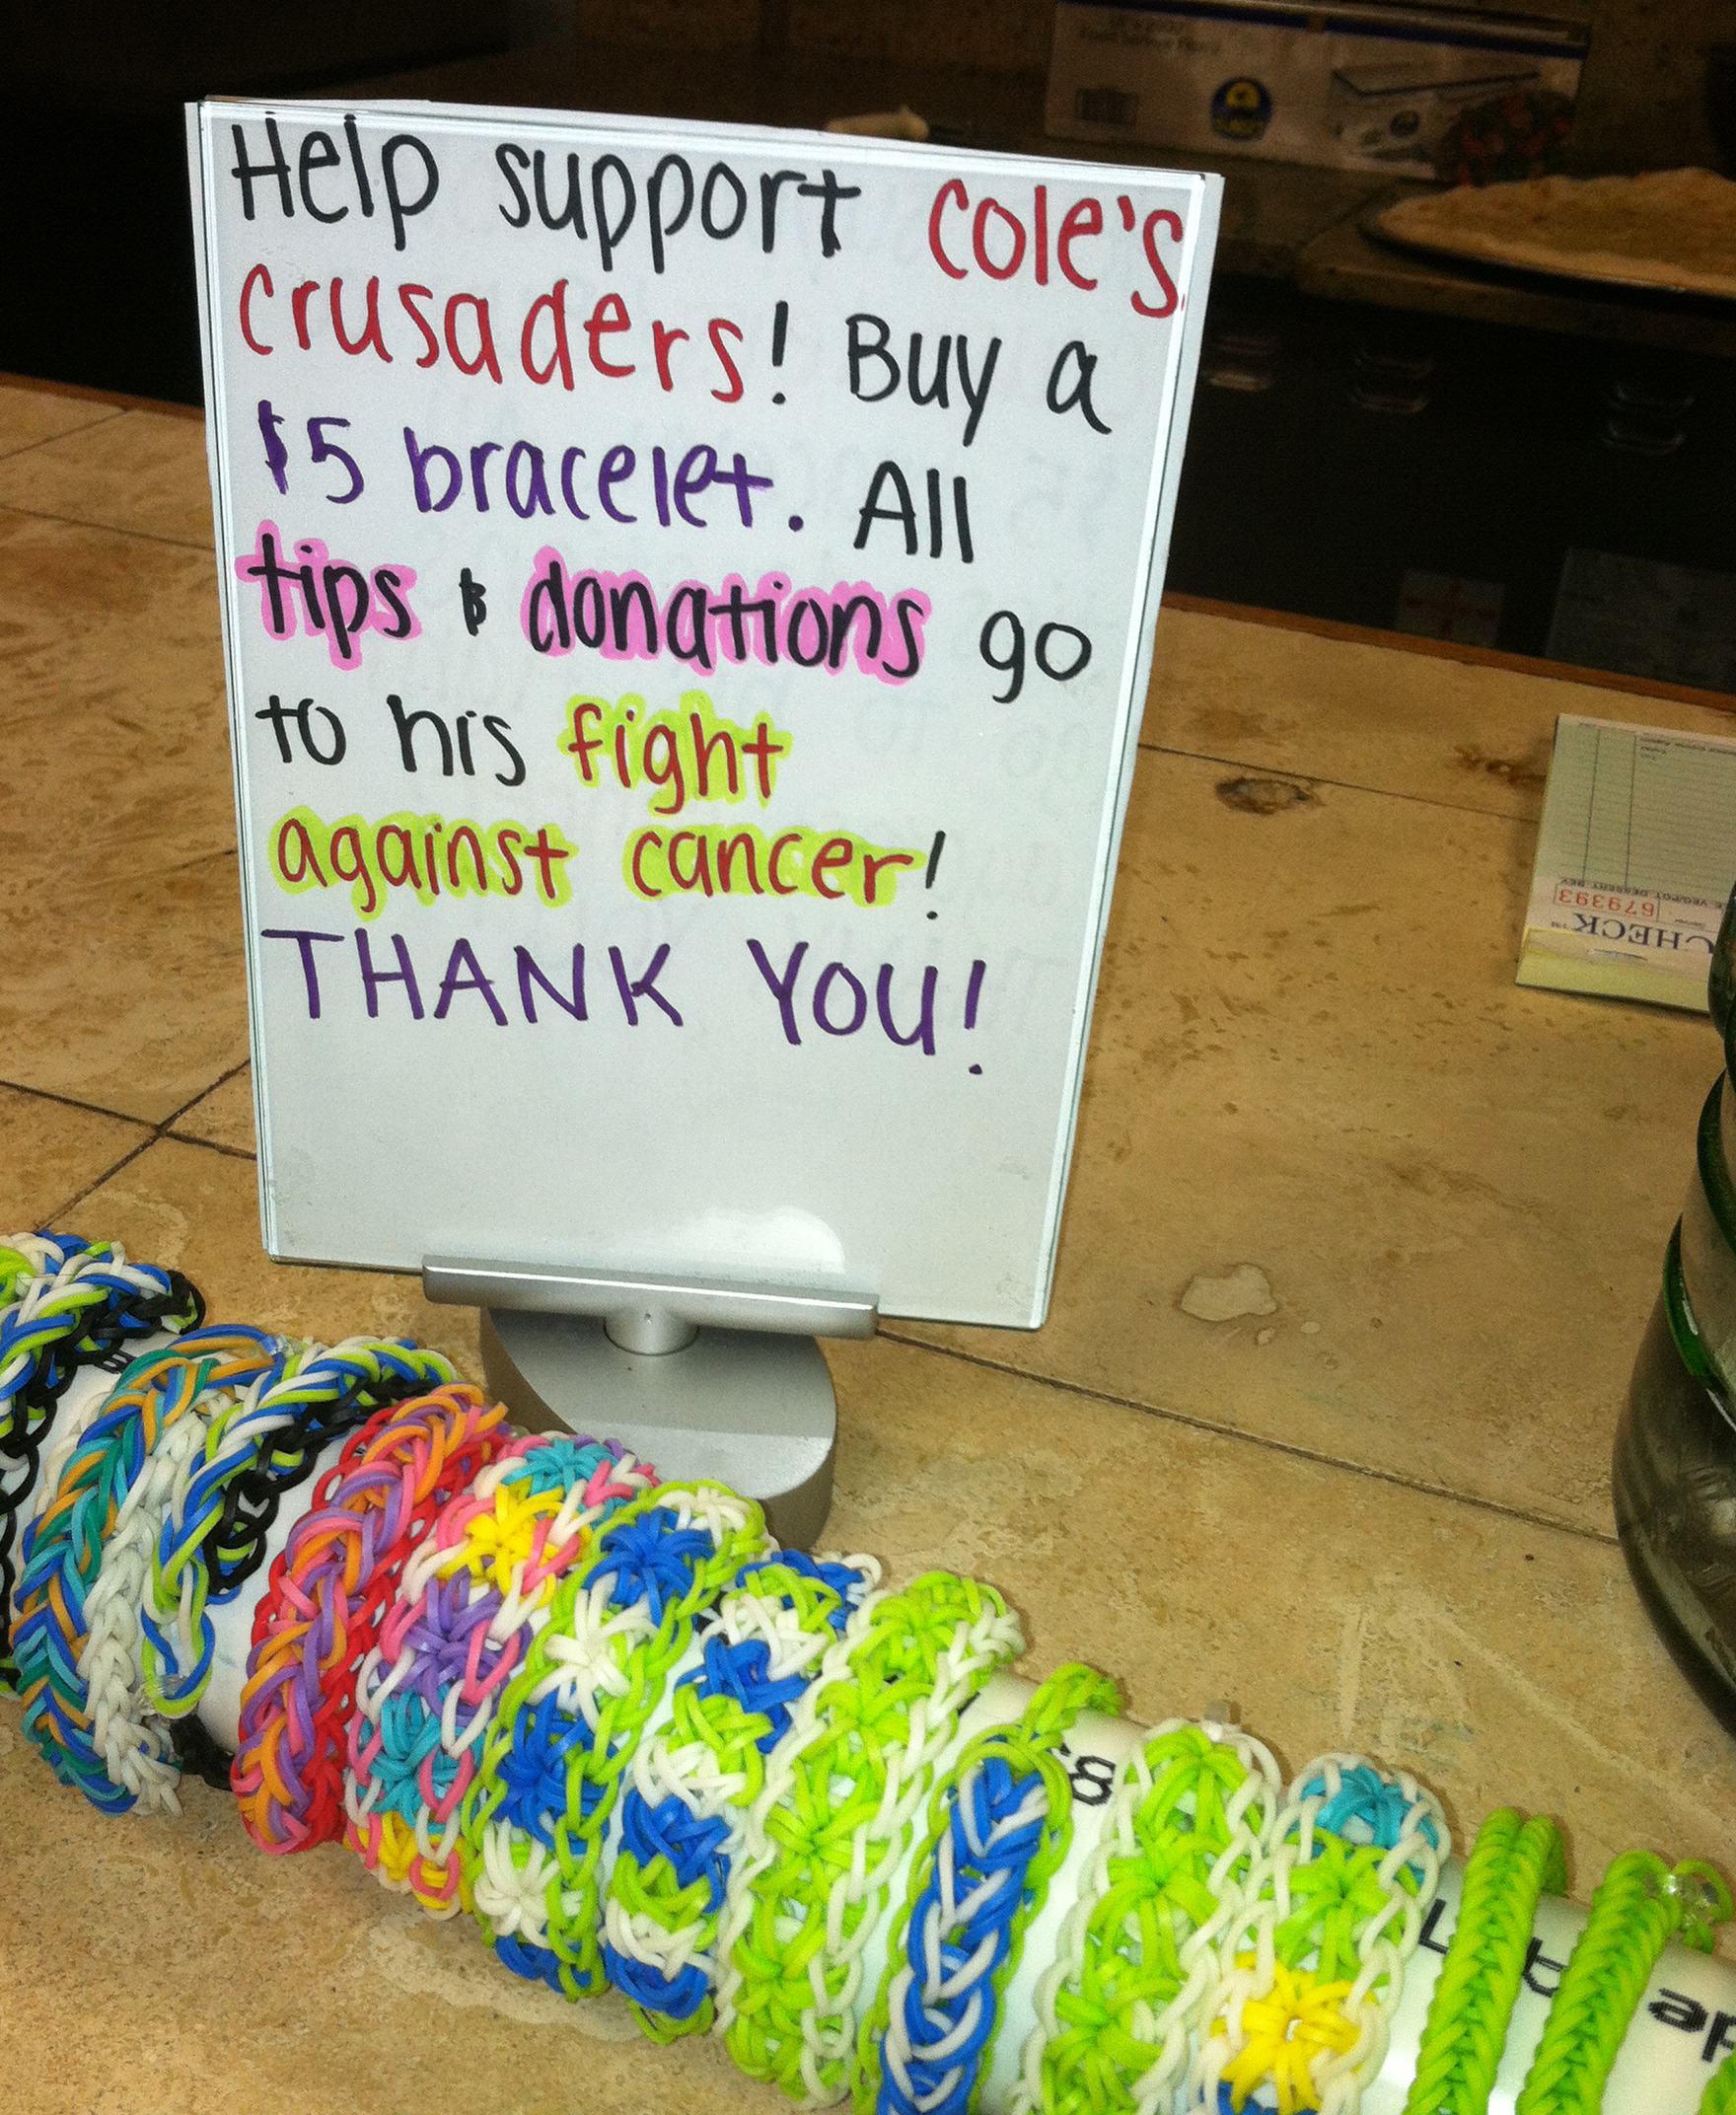 Help support Cole's
crusaders! Buy a
$5 bracelet. All
tips & donations go
to his fight
against cancer!
THANK YOU!
679393
CHECK